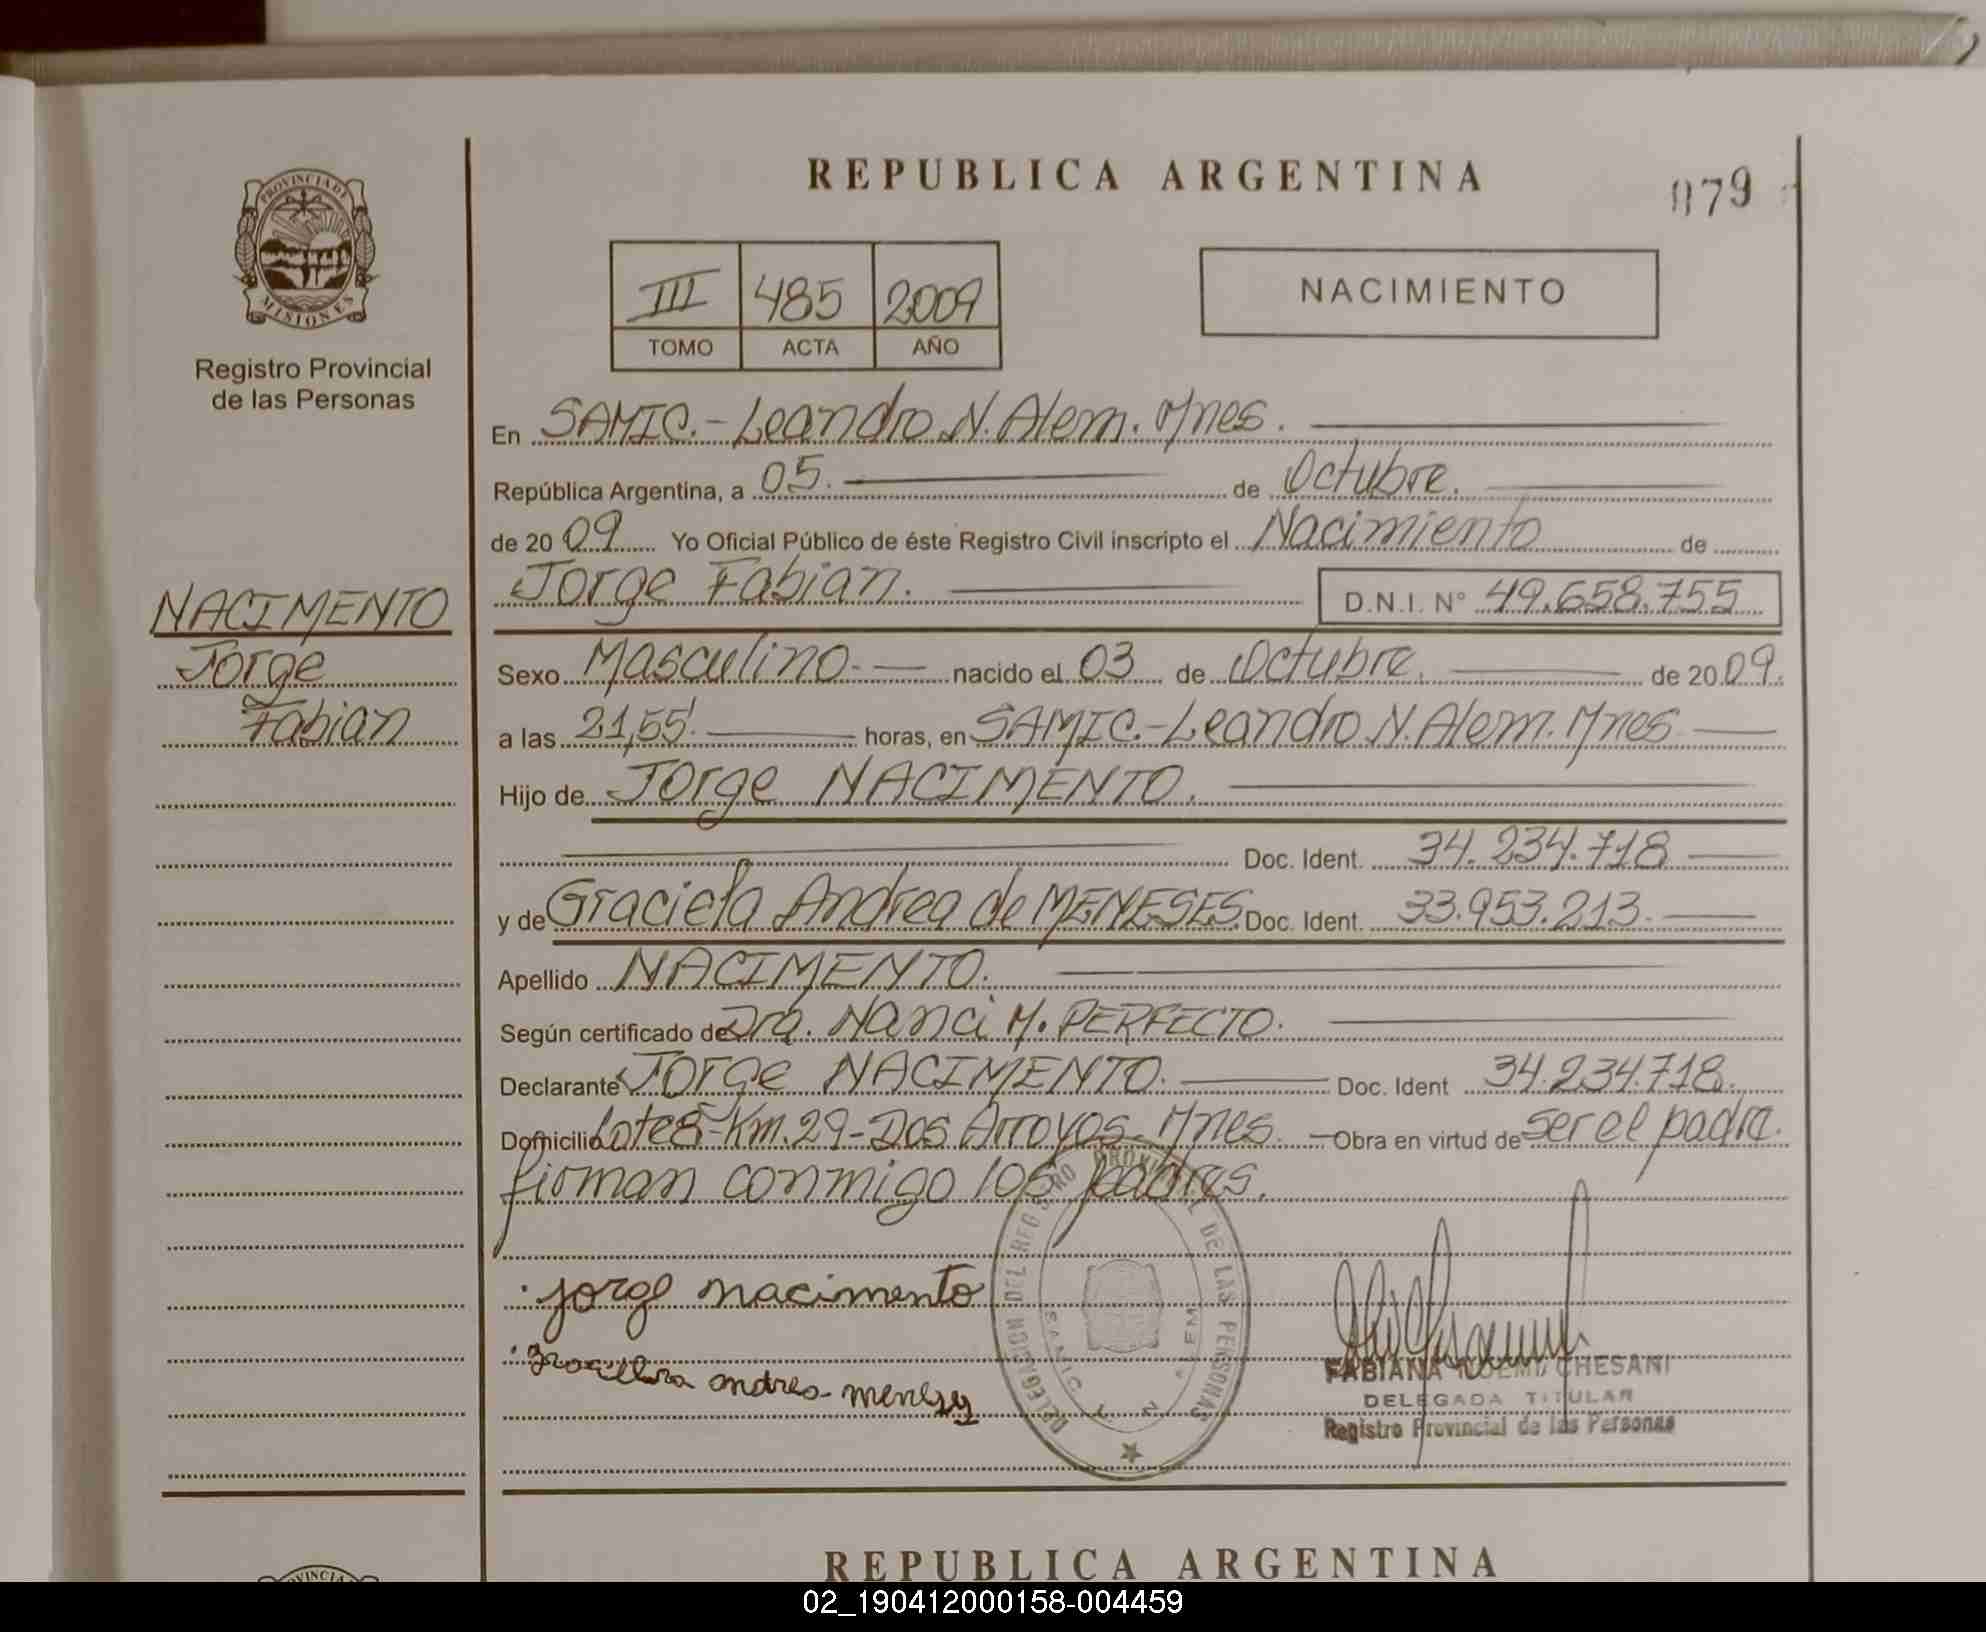 REPUBLICA ARGENTINA
079
PROVINCIA DE
MISIONES
Registro Provincial
de las Personas
III 485 2009
TOMO ACTA AÑO
NACIMIENTO
En SAMIC.- Leandro N. Alem. Mnes.
República Argentina, a 05. de Octubre.
de 2009 Yo Oficial Público de éste Registro Civil inscripto el Nacimiento de
Jorge Fabian. D.N.I. Nº 49.658.755
NACIMENTO
Jorge
Fabian
Sexo Masculino.- nacido el 03 de Octubre. de 2009.
a las 21,55. horas, en SAMIC.-Leandro N. Alem. Mnes
Hijo de Jorge NACIMENTO.
Doc. Ident. 34.234.718
y de Graciela Andrea de MENESES. Doc. Ident. 33.953.213.
Apellido NACIMENTO.
Según certificado de Dra. Nanci M. PERFECTO.
Declarante Jorge NACIMENTO. Doc. Ident 34.234.718.
Domicilio Lote 8-Km.29-Dos Arroyos. Mnes. Obra en virtud de ser el padre.
firman conmigo los padres.
jorge nacimento
andrea
DELEGACION DEL REGISTRO PROVINCIAL DE LAS PERSONAS
SAMIC L. N. ALEM
FABIANA NOEMI CHESANI
DELEGADA TITULAR
Registro Provincial de las Personas
REPUBLICA ARGENTINA
02_190412000158-004459